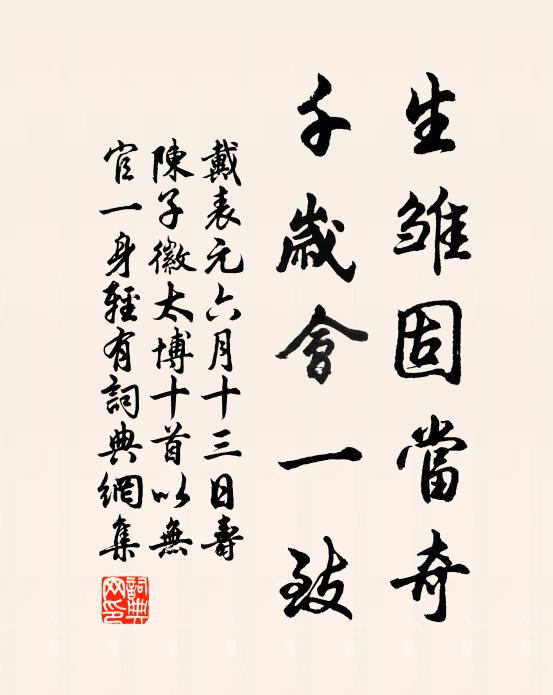 生雛固當奇
千歲會一致
戴表元六月十三日壽
陳子徽太博十首以無
官一身輕有詞典網集
詞典网印